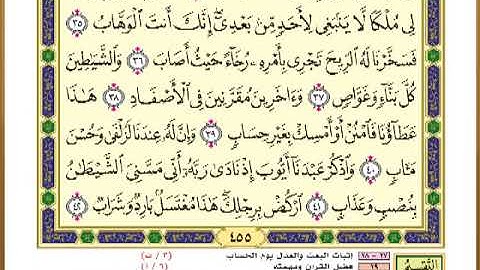 لِى مُلْكًا لَّا يَنۢبَغِى لِأَحَدٍ مِّنۢ بَعْدِىٓ ۖ إِنَّكَ أَنتَ ٱلْوَهَّابُ ٣٥
فَسَخَّرْنَا لَهُ ٱلرِّيحَ تَجْرِى بِأَمْرِهِۦ رُخَآءً حَيْثُ أَصَابَ ٣٦ وَٱلشَّيَٰطِينَ
كُلَّ بَنَّآءٍ وَغَوَّاصٍ ٣٧ وَءَاخَرِينَ مُقَرَّنِينَ فِى ٱلْأَصْفَادِ ٣٨ هَٰذَا
عَطَآؤُنَا فَٱمْنُنْ أَوْ أَمْسِكْ بِغَيْرِ حِسَابٍ ٣٩ وَإِنَّ لَهُۥ عِندَنَا لَزُلْفَىٰ وَحُسْنَ
مَـَٔابٍ ٤٠ وَٱذْكُرْ عَبْدَنَآ أَيُّوبَ إِذْ نَادَىٰ رَبَّهُۥٓ أَنِّى مَسَّنِىَ ٱلشَّيْطَٰنُ
بِنُصْبٍ وَعَذَابٍ ٤١ ٱرْكُضْ بِرِجْلِكَ ۖ هَٰذَا مُغْتَسَلٌۢ بَارِدٌ وَشَرَابٌ ٤٢
٤٥٥
التقسيم ١٧-٢٨ إثبات البعث والعدل يوم الحساب (٣ / ت)
١٩ فضل القرآن ومهمته (٦ / أ)